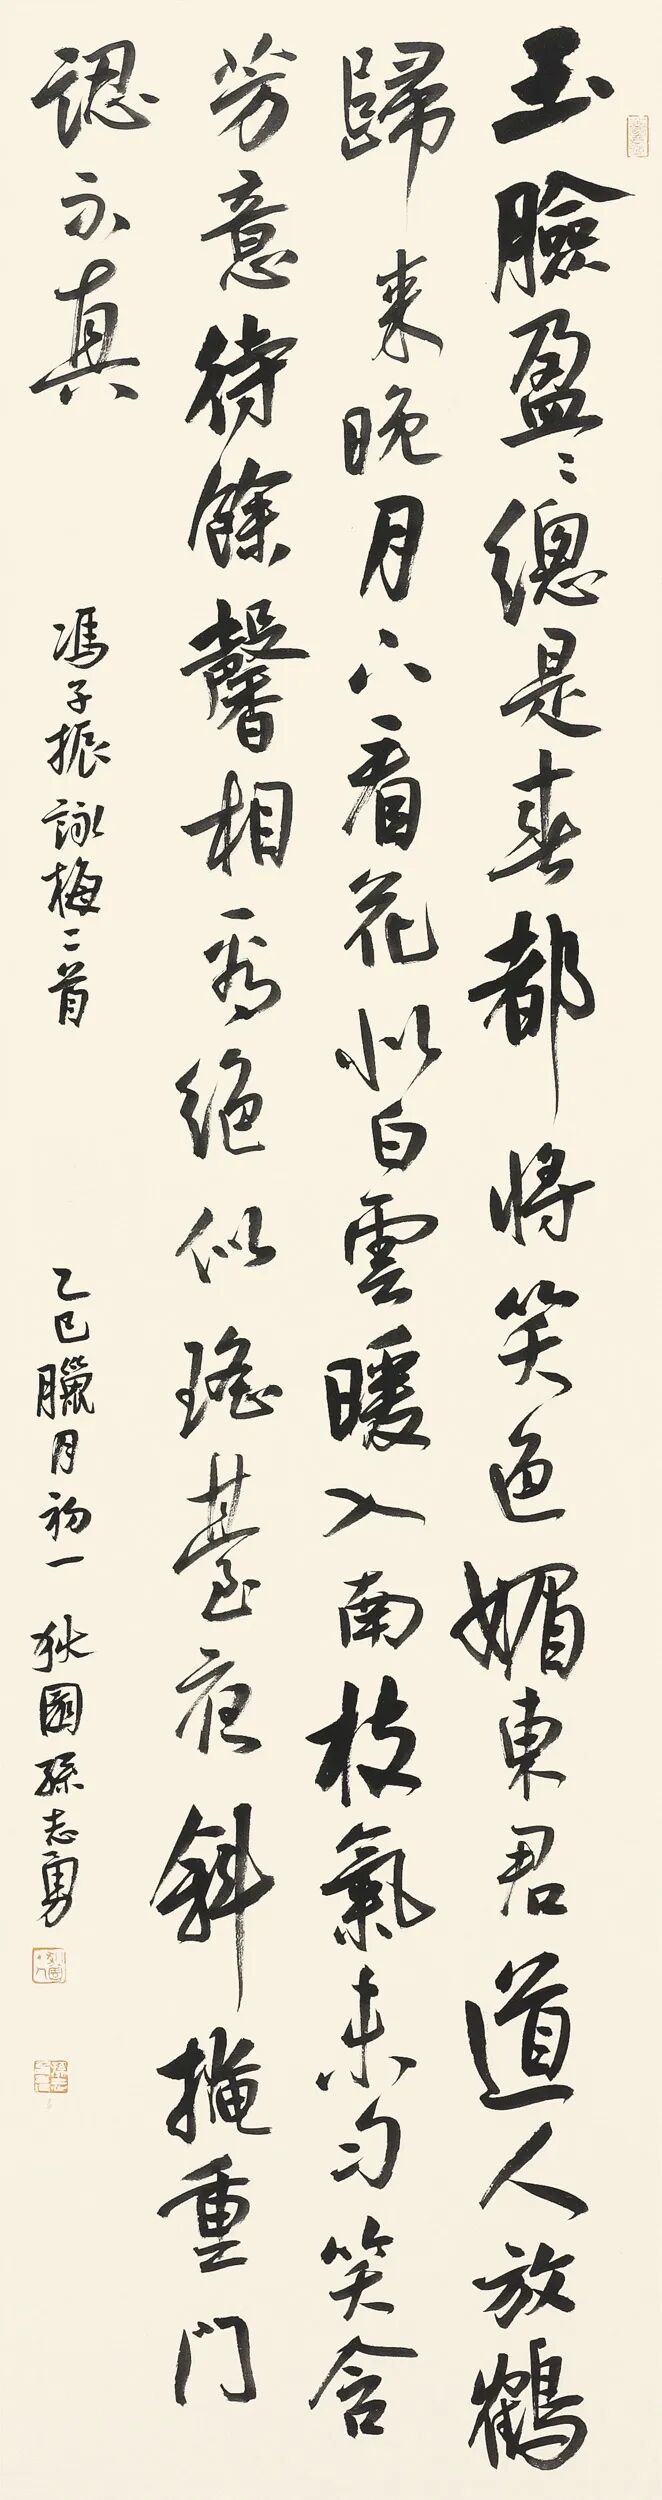 玉臉盈〻總是春都將笑色媚東君道人放鶴
歸來晚月下看花似白雲暖入南枝氣未勻笑含
芳意待餘馨相看絕似瑤臺夜斜掩重門
認不真
馮子振詠梅二首
乙巳臘月初一 狄園孫志勇